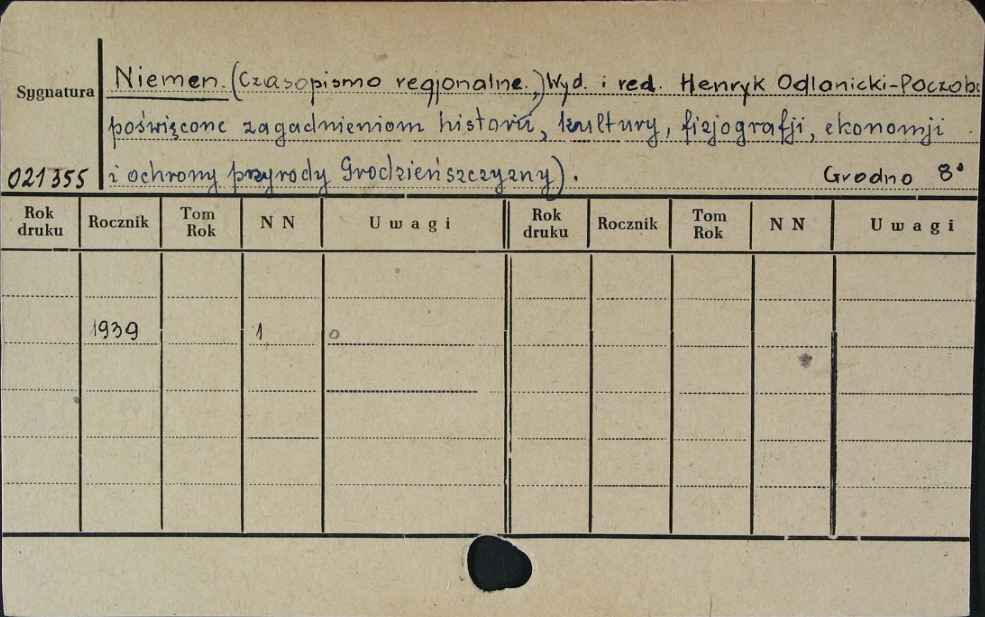 Niemen. (Czasopismo regjonalne.) Wyd. i red. Henryk Odlanicki-Poczob
Sygnatura
poświęcone zagadnieniom historii, kultury, fizjografji, ekonomji
021355 i ochrony przyrody Grodzieńszczyzny). Grodno 8°
Rok druku Rocznik Tom Rok N N Uwagi Rok druku Rocznik Tom Rok N N Uwagi
1939 1 o